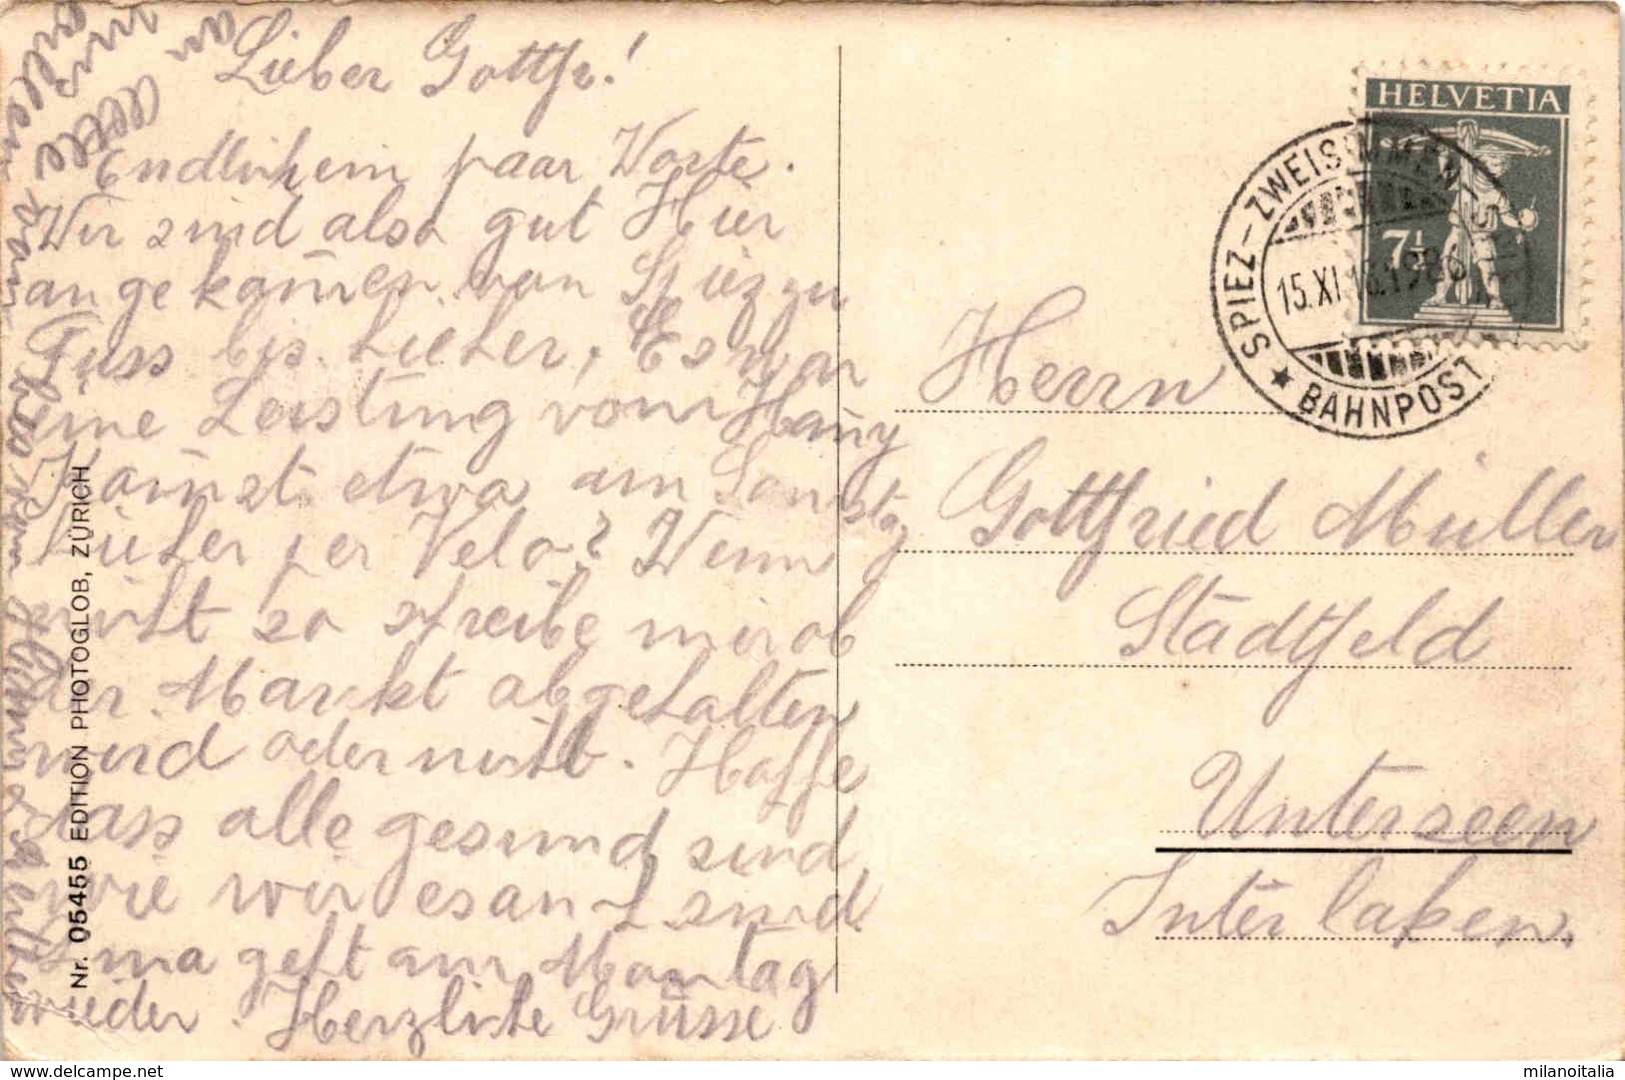 Lieber Gottfr!
Endlich ein paar Worte.
Wir sind also gut Hier
angekom̄en von Spiez zu
Fuss bis hieher, Es war
eine Leistung vom Han̄y
Kan̄st etwa am Samstag
hieher per Velo? Wenn
nicht so schreibe mir ob
der Markt abgehalten
wird oder nicht. Hoffe
dass alle gesund sind
wie wir es auch sind
Ema geht am Montag
wieder. Herzliche Grüsse
an alle
von
Nr. 05455 EDITION PHOTOGLOB, ZÜRICH
HELVETIA
7½
SPIEZ–ZWEISIMMEN
15.XI.
BAHNPOST
Herrn
Gottfried Müller
Stadtfeld
Unterseen
Interlaken.
www.delcampe.net
milanoitalia